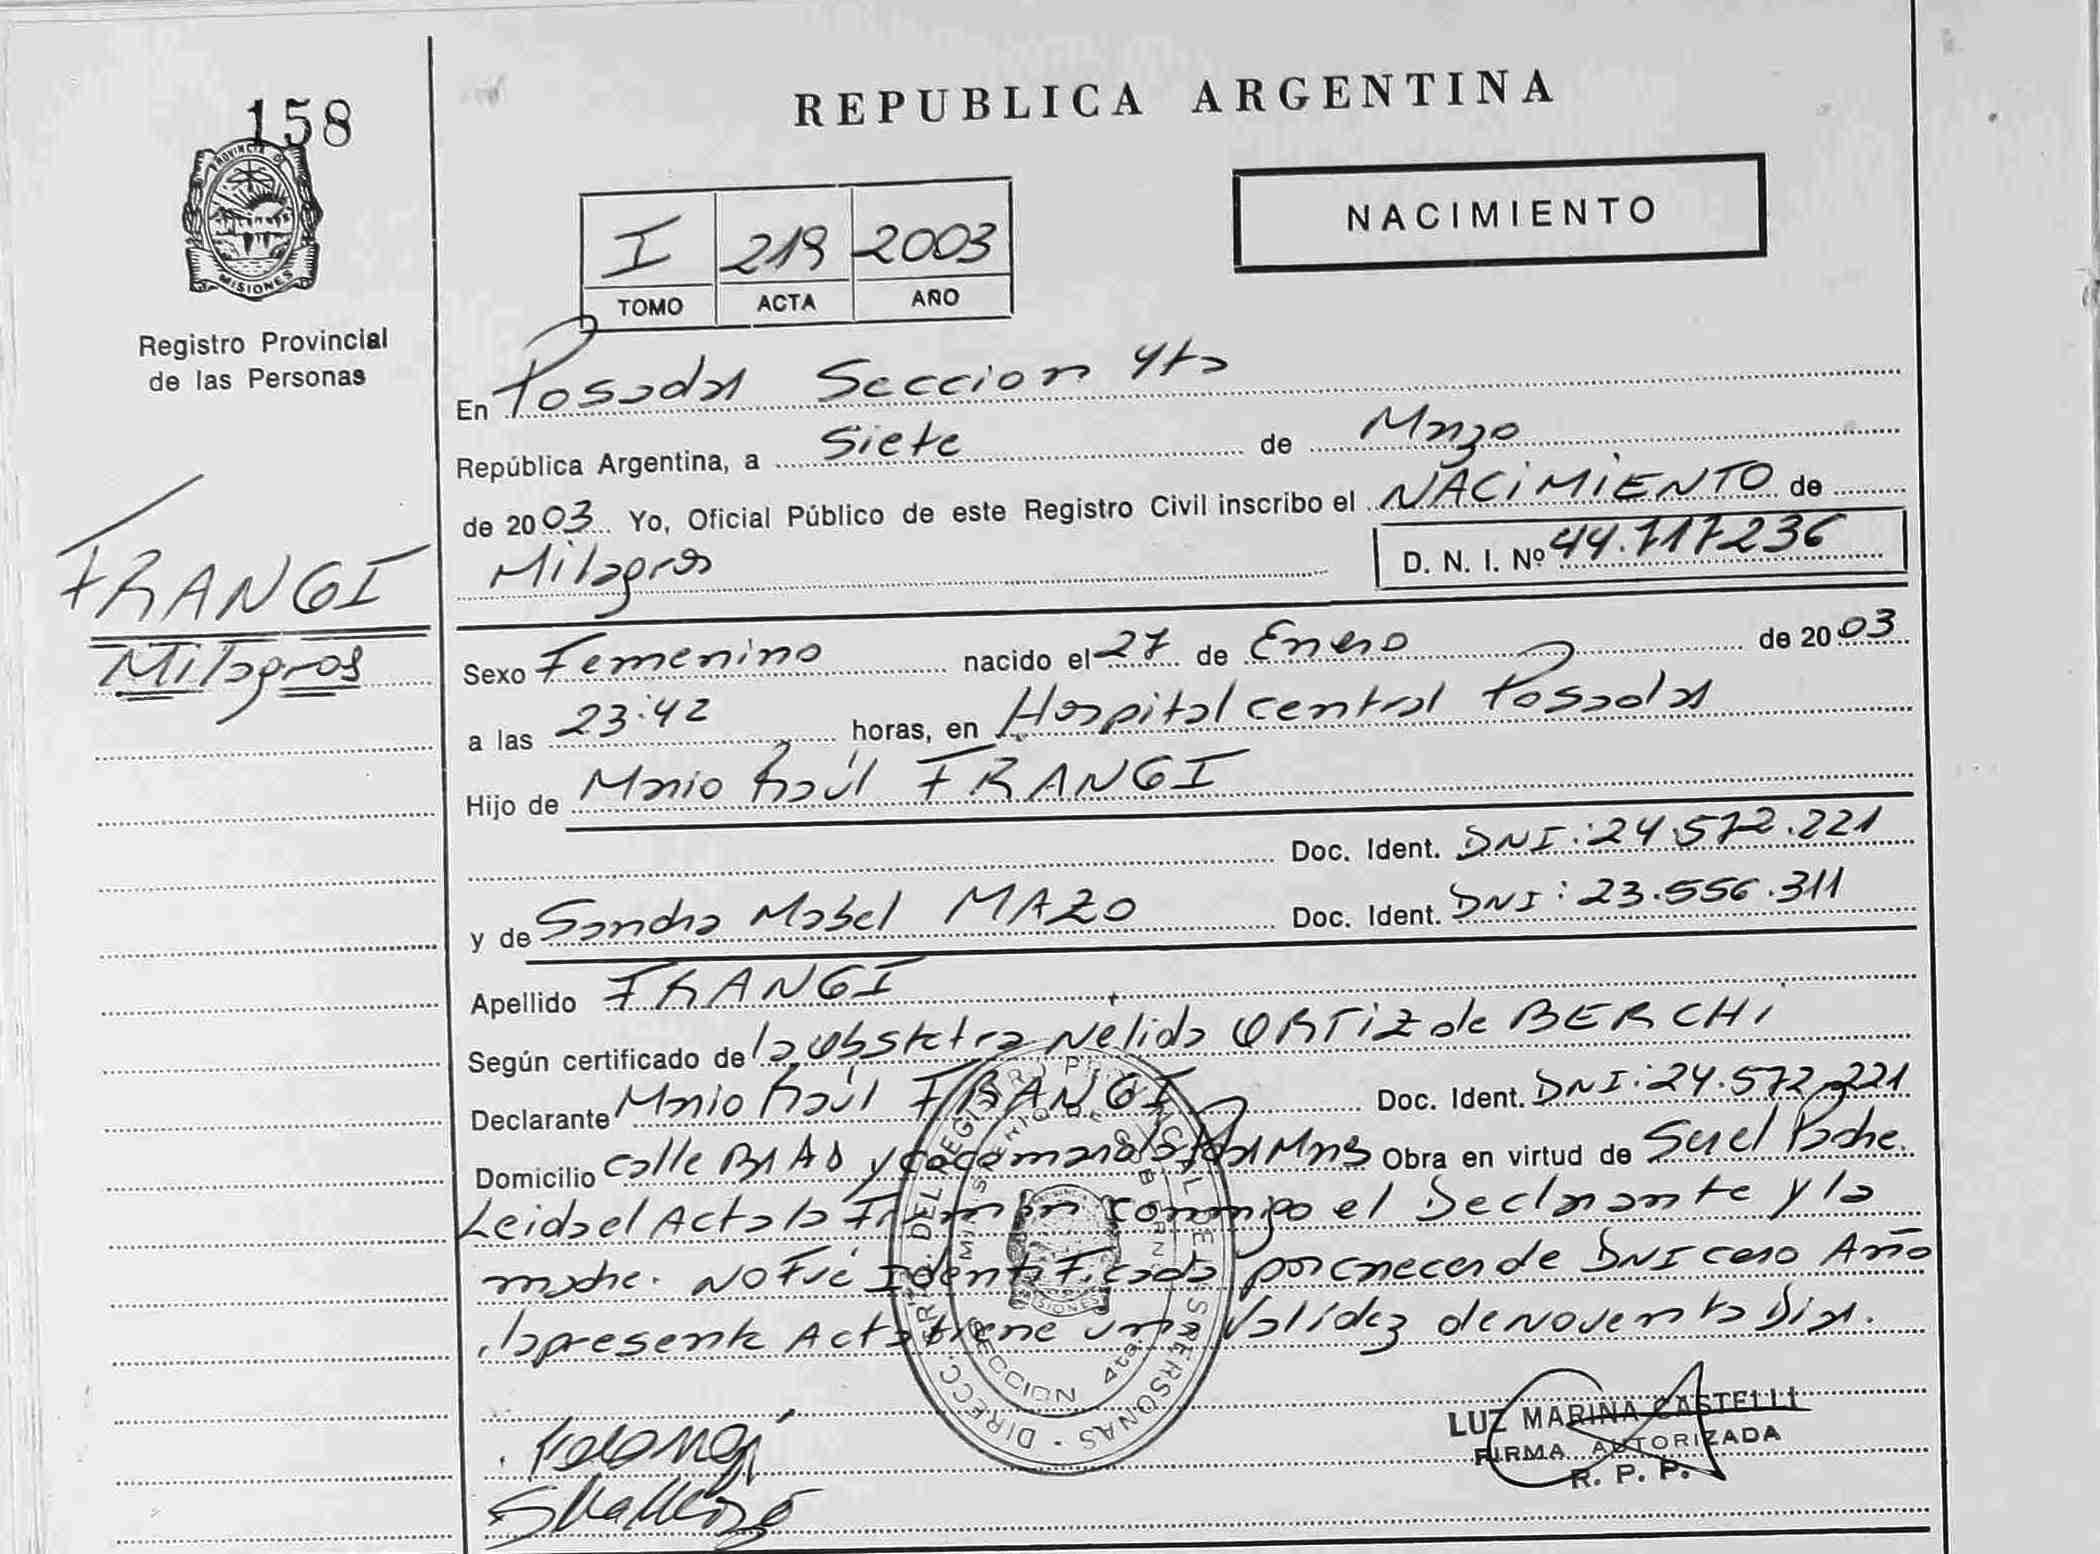 158
PROVINCIA DE
MISIONES
Registro Provincial
de las Personas
FRANGI
Milagros
REPUBLICA ARGENTINA
NACIMIENTO
I 219 2003
TOMO ACTA AÑO
En Posadas Seccion 4ta
República Argentina, a Siete de Marzo
de 2003 Yo, Oficial Público de este Registro Civil inscribo el NACIMIENTO de
Milagros D. N. I. Nº 44.717.236
Sexo Femenino nacido el 27 de Enero de 2003
a las 23:42 horas, en Hospital central Posadas
Hijo de Mario Raúl FRANGI
Doc. Ident. DNI: 24.572.221
y de Sandra Mabel MAZO Doc. Ident. DNI: 23.556.311
Apellido FRANGI
Según certificado de la obstetra Nelida ORTIZ de BERCHI
Declarante Mario Raúl FRANGI Doc. Ident. DNI: 24.572.221
Domicilio calle y Obra en virtud de Ser el Padre.
Leida el Acta la Firman conmigo el Declarante y la
madre. NO Fué Identificada por carecer de DNI cero Año
la presente Acta tiene una Validez de Noventa Dias.
DIRECC. GRAL. DEL REGISTRO PROVINCIAL DE LAS PERSONAS
MINISTERIO DE GOBIERNO
MISIONES
SECCION 4ta
LUZ MARINA CASTELLI
FIRMA AUTORIZADA
R. P. P.